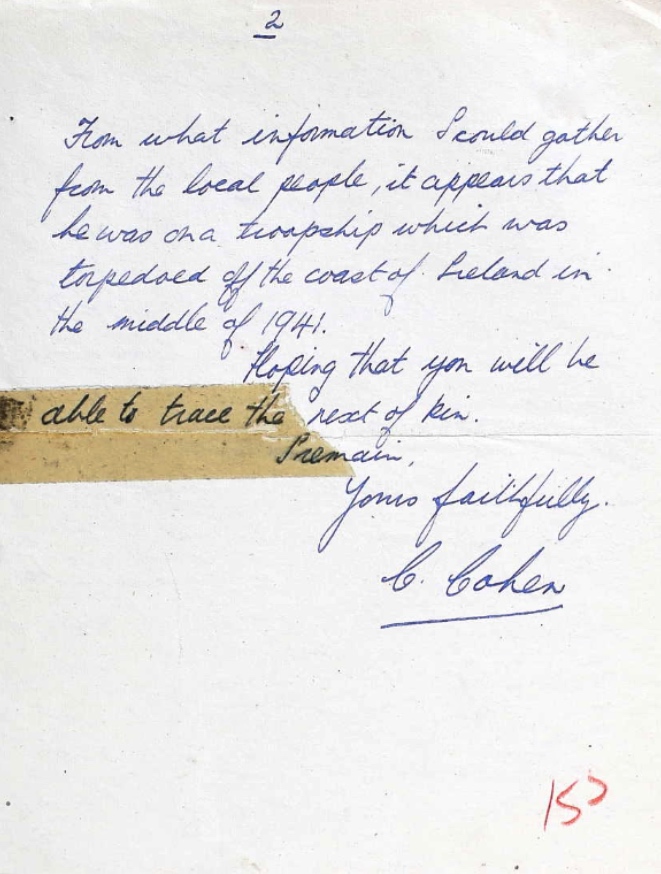 2
From what information I could gather
from the local people, it appears that
he was on a troopship which was
torpedoed off the coast of Ireland in
the middle of 1941.
Hoping that you will be
able to trace the next of kin.
I remain,
Yours faithfully.
C. Cohen
155